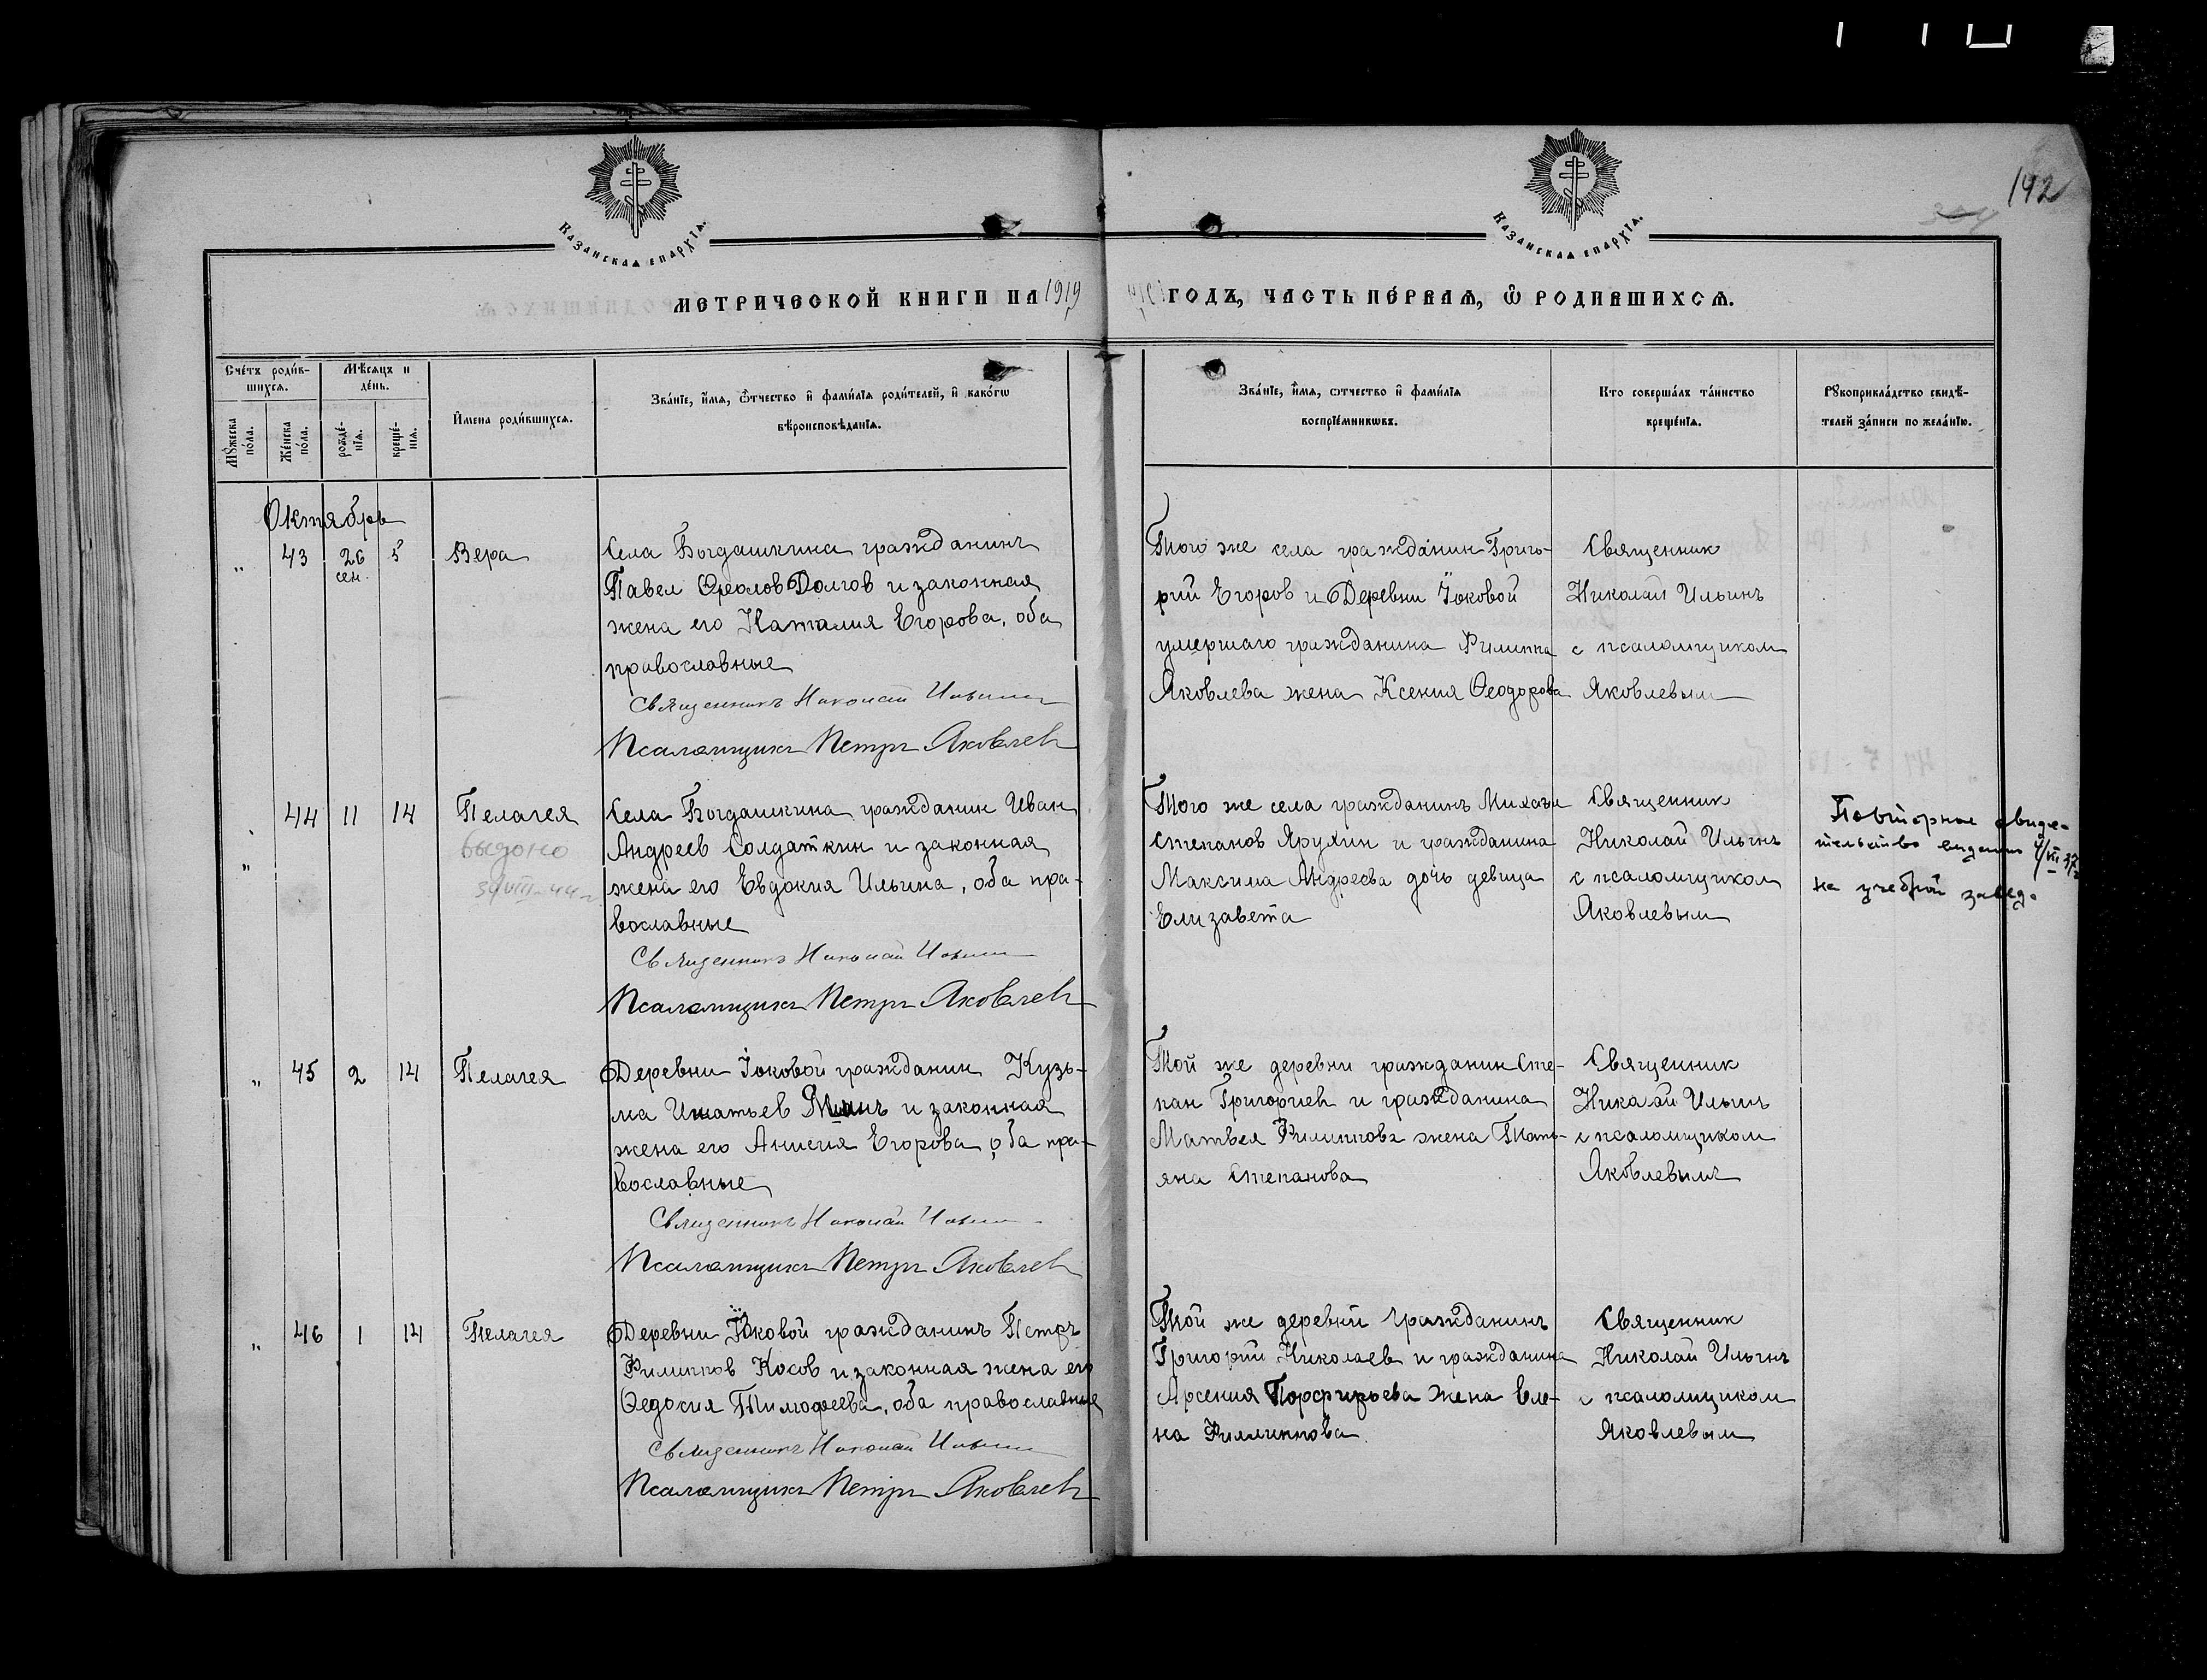 142
Казанская епархїѧ.
Казанская епархїѧ.
МЕТРИЧЕСКОЙ КНИГИ НА 1919
ГОДЪ, ЧАСТЬ ПЕ́РВАѦ, Ѿ РОДИВШИХСѦ.
Сче́тъ роди́в-
шихсѧ.
Мѣ́сѧцъ и
де́нь.
Мꙋ́жеска
по́ла.
Же́нска
по́ла.
рожде́-
нїѧ.
креще́-
нїѧ.
И҆мена̀ роди́вшихсѧ.
Зва́нїе, и҆́мѧ, ѻ҆́тчество и҆ фами́лїѧ роди́телей, и҆ како́гѡ
вѣроисповѣ́данїѧ.
Зва́нїе, и҆́мѧ, ѻтчество и҆ фами́лїѧ
воспрїе́мникѡвъ.
Кто соверша́лъ та́инство
креще́нїѧ.
Рꙋкоприкла́дство свидѣ́-
телей за́писи по жела́нїю.
Октябрь
„ 43 26 5 Вера
сен.
Села Богдашкина гражданинъ
Павел Фролов Долгов и законная
жена его Наталия Егорова, оба
православные
Священникъ Николай Ильинъ
Псаломщикъ Петръ Яковлев
Того же села гражданин Григо-
рий Егоров и Деревни Юковой
умершаго гражданина Филиппа
Яковлева жена Ксения Феодорова
Священник
Николай Ильинъ
с псаломщиком
Яковлевым
„ 44 11 14 Пелагея
выдано
Села Богдашкина гражданин Иван
Андреев Солдаткин и законная
жена его Евдокия Ильина, оба пра-
вославные
Священникъ Николай Ильинъ
Псаломщикъ Петръ Яковлев
Того же села гражданинъ Михаил
Степанов Ярухин и гражданина
Максима Андреева дочь девица
Елизавета
Священник
Николай Ильинъ
с псаломщиком
Яковлевым
Повторное свиде-
тельство выдано
на учебной завед.
„ 45 2 14 Пелагея
Деревни Юковой гражданин Кузь-
ма Игнатьев и законная
жена его Анисия Егорова оба пра-
вославные
Священникъ Николай Ильинъ
Псаломщикъ Петръ Яковлев
Той же деревни гражданин Сте-
пан Григориев и гражданина
Матвея Филиппова жена Тать-
яна Степанова
Священник
Николай Ильинъ
с псаломщиком
Яковлевымъ
„ 46 1 14 Пелагея
Деревни Юковой гражданинъ Петръ
Филиппов Косов и законная жена его
Федосия Тимофеева, оба православные
Священникъ Николай Ильинъ
Псаломщикъ Петръ Яковлев
Той же деревни гражданинъ
Григорий Николаев и гражданина
Арсения Порфирьева жена Еле-
на Филиппова
Священник
Николай Ильинъ
с псаломщиком
Яковлевым